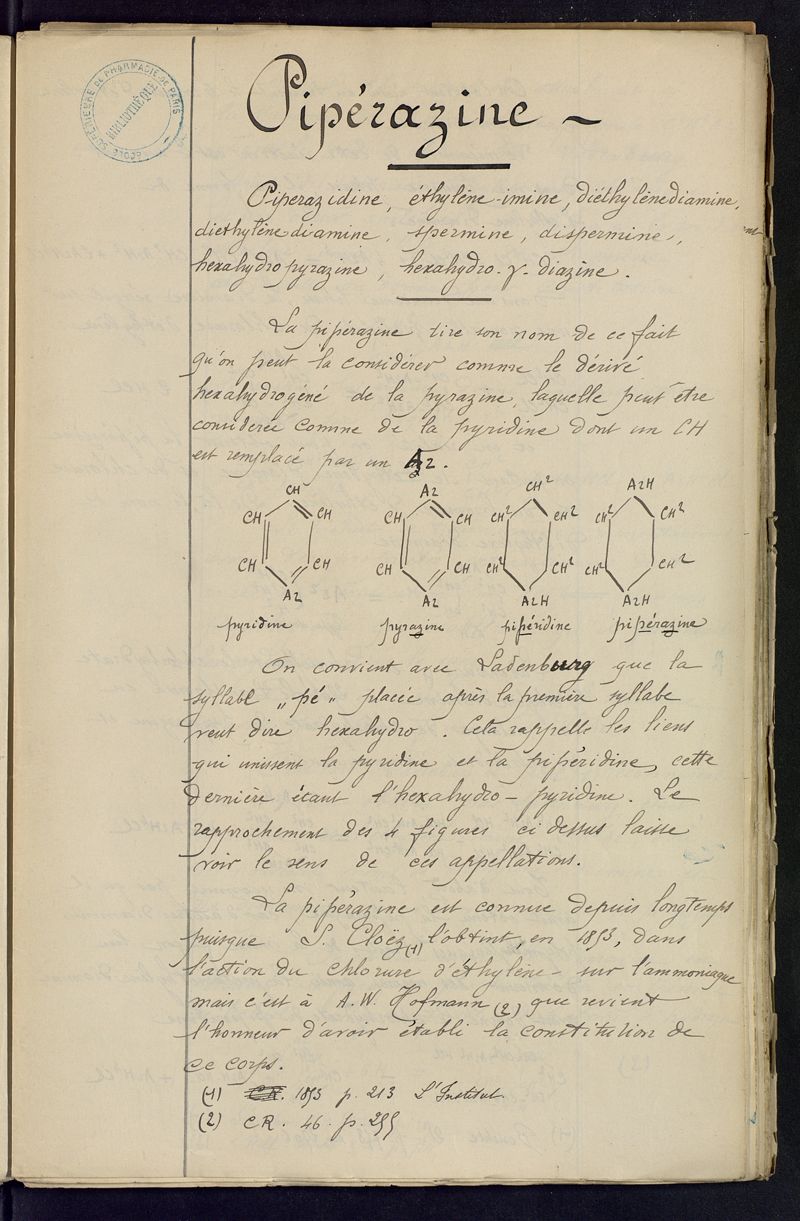 ÉCOLE SUPÉRIEURE DE PHARMACIE DE PARIS
BIBLIOTHÈQUE
Pipérazine -
Piperazidine, éthylène-imine, diéthylènediamine,
diethylène diamine, spermine, dispermine,
hexahydropyrazine, hexahydro-γ-diazine.
La pipérazine tire son nom de ce fait
qu'on peut la considérer comme le dérivé
hexahydrogéné de la pyrazine, laquelle peut être
considérée comme de la pyridine dont un CH
est remplacé par un Az.
CH Az CH² AzH
CH CH CH CH CH² CH² CH² CH²
CH CH CH CH CH² CH² CH² CH²
Az Az AzH AzH
pyridine pyrazine pipéridine pipérazine
On convient avec Ladenburg que la
syllabe „pé„ placée après la première syllabe
veut dire hexahydro. Cela rappelle les liens
qui unissent la pyridine et la pipéridine, cette
dernière étant l'hexahydro-pyridine. Le
rapprochement des 4 figures ci dessus laisse
voir le sens de ces appellations.
La pipérazine est connue depuis longtemps
puisque S. Cloëz (1) l'obtint, en 1853, dans
l'action du chlorure d'éthylène - sur l'ammoniaque
mais c'est à A.W. Hofmann (2) que revient
l'honneur d'avoir établi la constitution de
ce corps.
(1) CR. 1853 p. 213 L'Institut
(2) CR. 46. p. 255